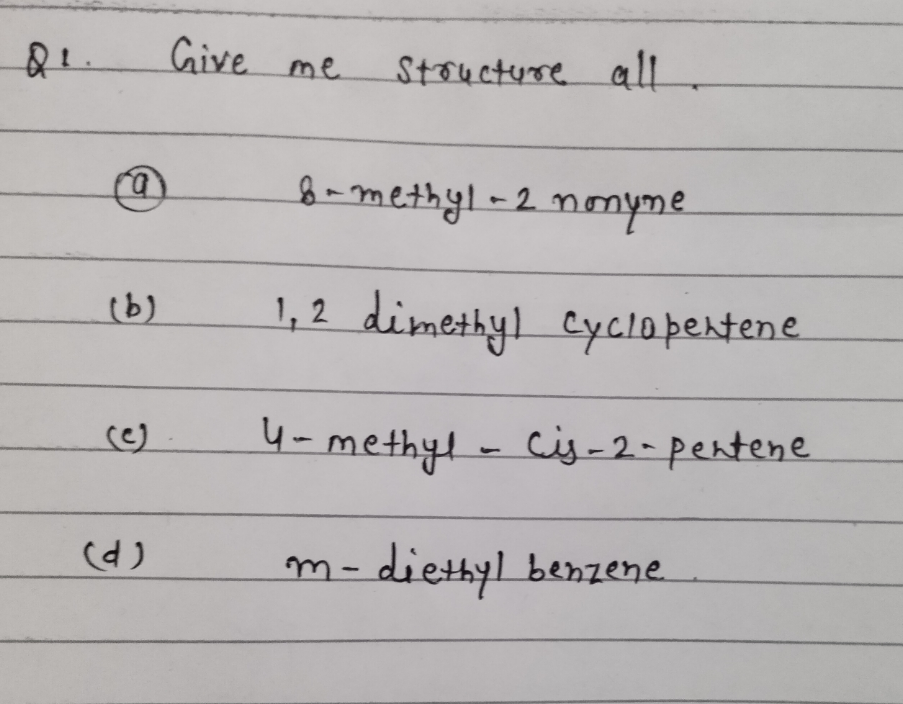 Q1. Give me structure all.
(a) 8-methyl-2 nonyne
(b) 1,2 dimethyl cyclopentene
(c) 4-methyl-cis-2-pentene
(d) m-diethyl benzene.